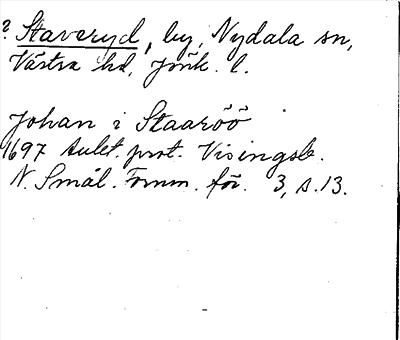 ? Staveryd, by, Nydala sn,
Västra hd, Jönk. l.
Johan i Staaröö
1697 Aukt. prot. Visingsb.
N. Smål. Fornm. för. 3, s. 13.